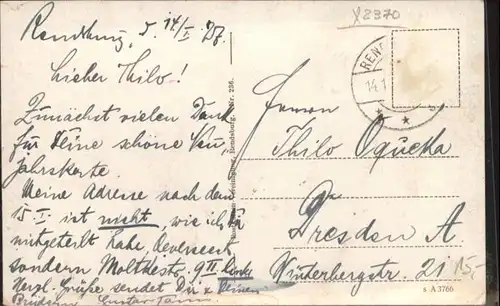 X2370
Rendsburg, d. 14/I. 27.
Lieber Thilo!
Zunächst vielen Dank
für Deine schöne Neu,
jahrskarte.
Meine Adresse nach dem
15 I. ist nicht, wie ich Dir
mitgeteilt habe,
sondern Moltkestr. 9 II links
Herzl. Grüße sendet Dir & Deinen
Brüdern Gustav
REND
14.1
Herrn
Thilo Oqueka
Dresden A
Winterbergstr. 21
15,-
Rendsburg. Nr. 236.
& A 3766